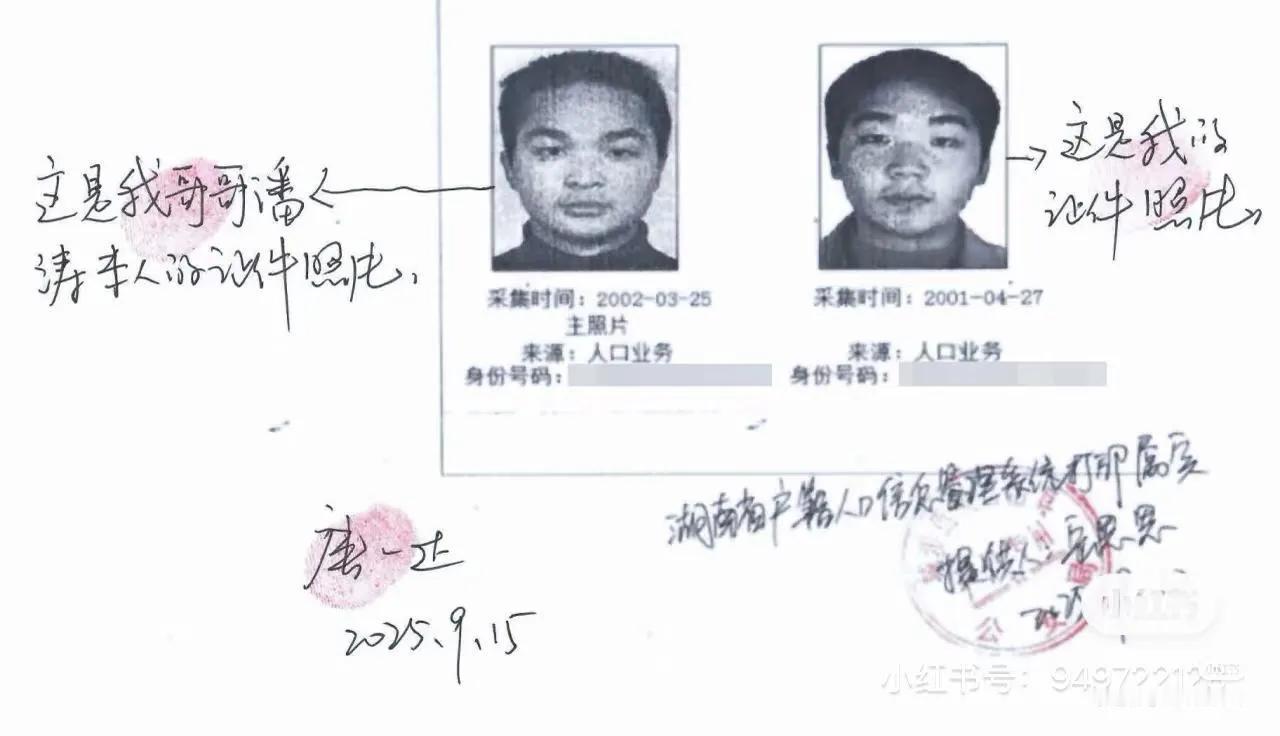 这是我哥哥潘
涛本人的证件照片。
这是我的
证件照片。
采集时间：2002-03-25
主照片
来源：人口业务
身份号码：
采集时间：2001-04-27
来源：人口业务
身份号码：
湖南省户籍人口信息管理系统打印属实
提供人：
唐一
2025.9.15
公
小红书
小红书号：
小红书